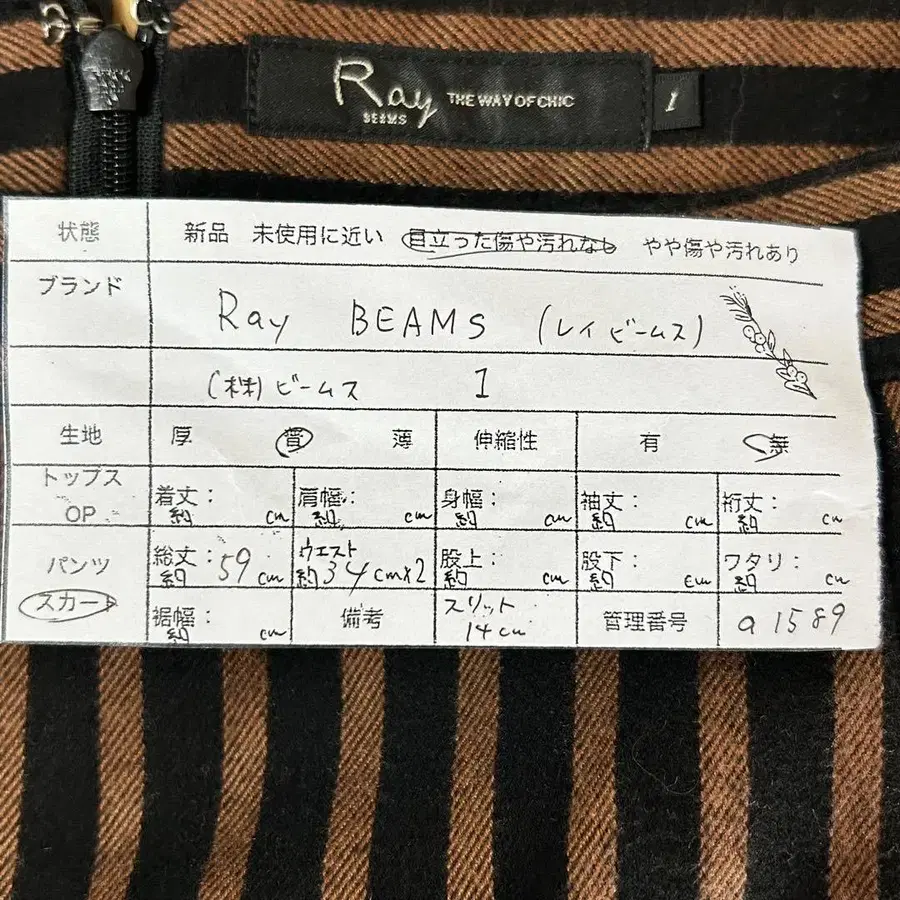 Ray THE WAY OF CHIC 1
BEAMS
状態 新品 未使用に近い 目立った傷や汚れなし やや傷や汚れあり
ブランド Ray BEAMS (レイ ビームス)
(株)ビームス 1
生地 厚 普 薄 伸縮性 有 無
トップス OP 着丈: 約 cm 肩幅: 約 cm 身幅: 約 cm 袖丈: 約 cm 裄丈: 約 cm
パンツ 総丈: 約 59 cm ウエスト 約 34 cm×2 股上: 約 cm 股下: 約 cm ワタリ: 約 cm
スカート 裾幅: 約 cm 備考 スリット 14cm 管理番号 a1589